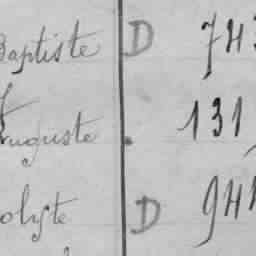 Baptiste D 743
Auguste . 131
olyte D 944